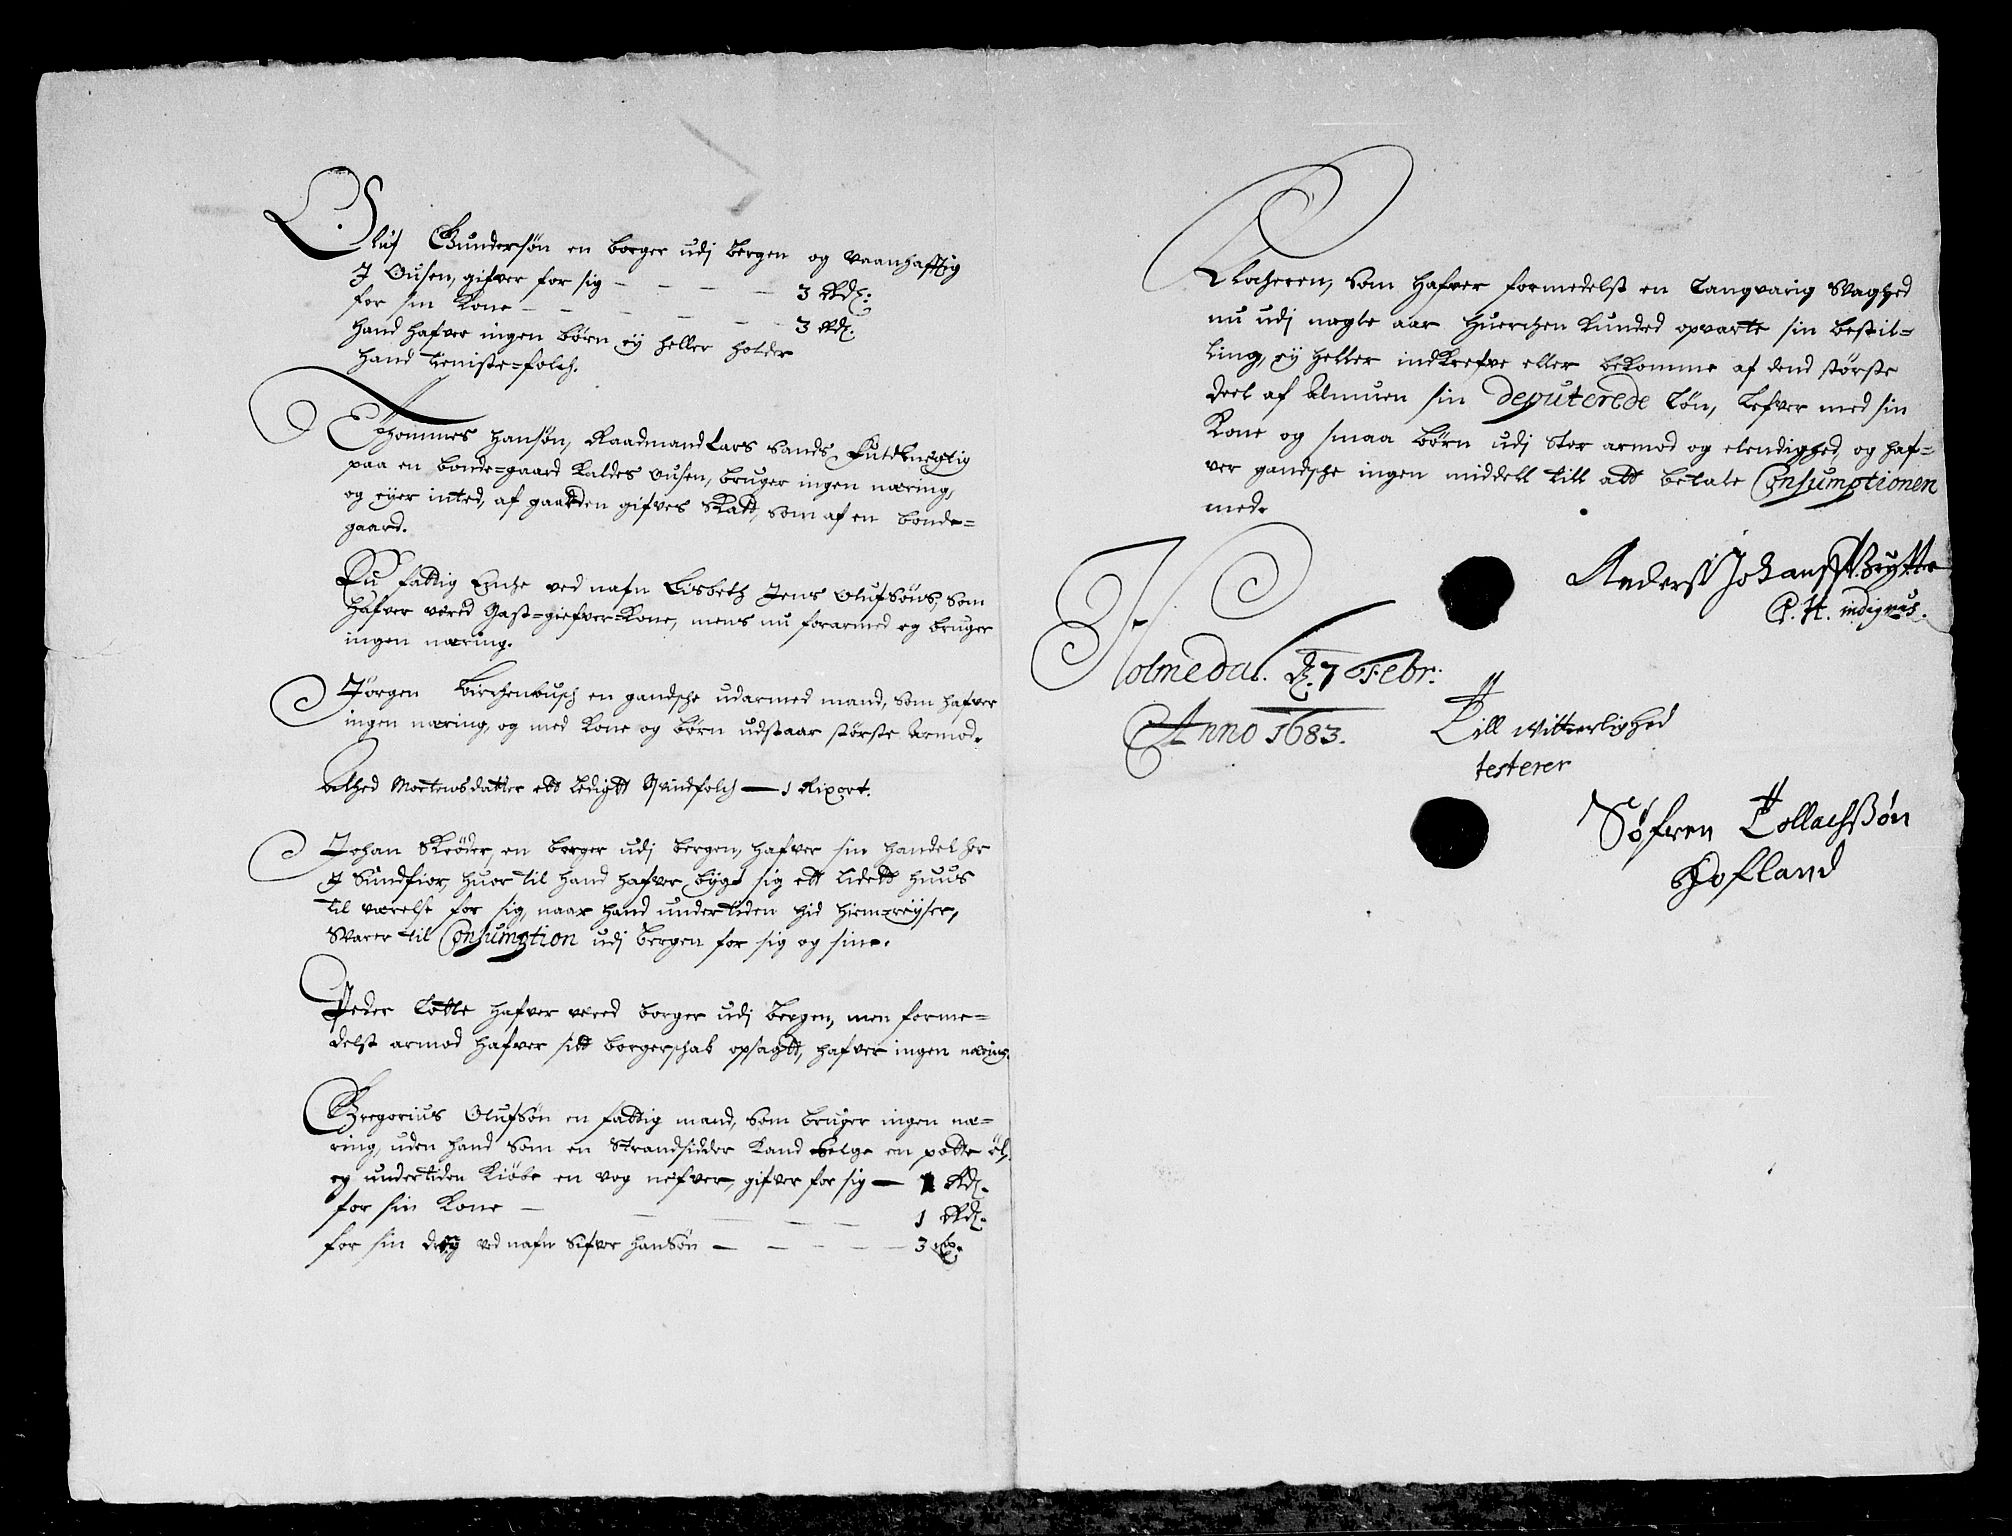 Oluf Gundersøn en borger udj bergen og vaanhafftig
J Ousen, gifver for sig — — — 3 Rdr:
for sin Kone — — — — 3 Rdr.
hand hafver ingen børn ey heller holder
hand tieniste-folch.
Thommes Hansøn, Raadmand Lars Sands
paa en bonde-gaard kaldes ousen, bruger ingen næring,
og eyer inted, af gaarden gifves Skatt, som af en bonde-
gaard.
En fattig Enche ved nafn Lisbeth Jens Olufsøns, som
hafver vered Gast-giefver-Kone, mens nu forarmed og bruger
ingen næring.
Jørgen Birchenbusch en gandsche udarmed mand, som hafver
ingen næring, og med Kone og børn udstaar største armod.
Alhed Mortensdatter ett ledigtt Qvindfolch — 1 Rixort.
Johan Skrøder, en borger udj bergen, hafver sin handel her
J Sundfior, huor til hand hafver bygt sig ett lidett huus
til værelse for sig, naar hand undertiden hid hiem-reyser,
Svarer til Consumption udj bergen for sig og sine.
Peder Lotte hafver vered borger udj bergen, men forme-
delst armod hafver sitt borgerschab opsagtt, hafver ingen næring.
Gregorius Olufsøn en fattig mand, som bruger ingen næ-
ring, uden hand som en Strandsidder kand selge en potte øl,
og undertiden kiøbe en vog nefver, gifver for sig — 1 Rdr.
for sin Kone — — — — 1 Rdr.
for sin dreng ved nafn Sifver Hansøn — — — 3
Klocheren, som hafver formedelst en langvarig Svaghed
nu udj nogle aar huerchen kunded opvarte sin bestil-
ling, ey heller indkrefve eller bekomme af dend største
deel af almuen sin deputerede løn, lefver med sin
Kone og smaa børn udj stor armod og elendighed, og haf-
ver gandsche ingen middell till att betale Consumptionen
med.
Anders Johans
P. H. indignus.
Holmedal. d. 7 Febr:
Anno 1683.
Till vitterlighed
testerer
Søfren Tollachsøn
Hofland